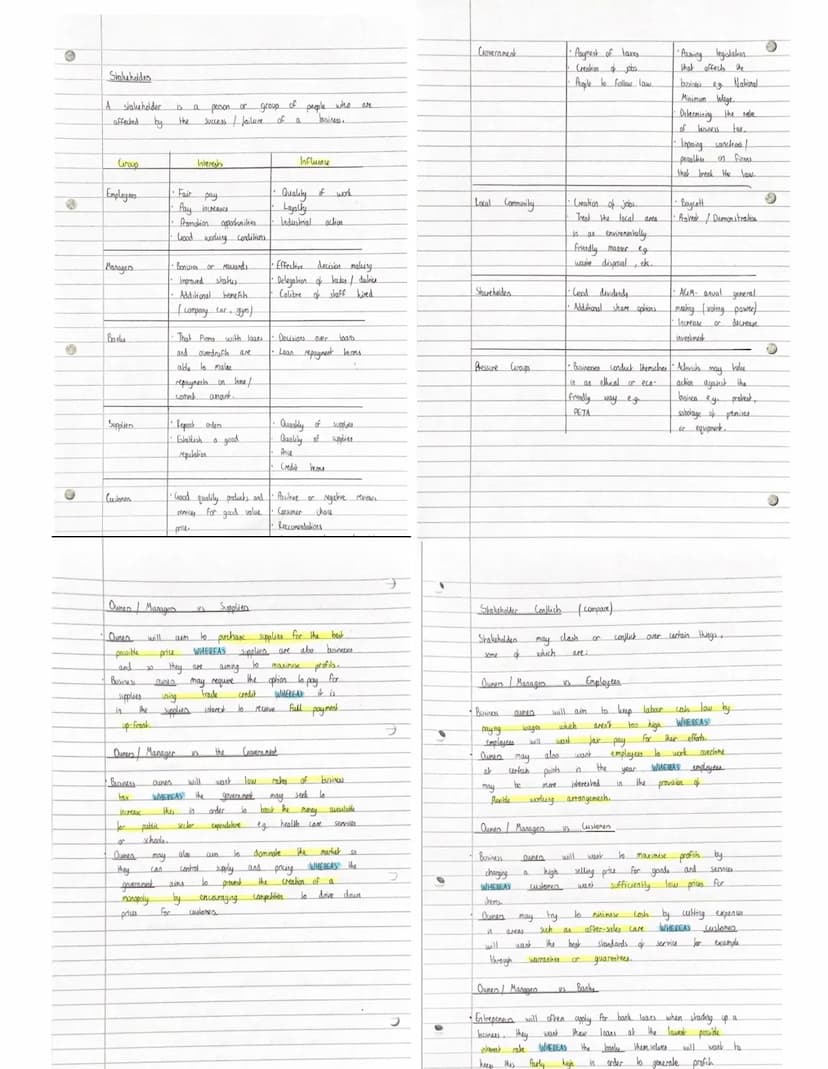 Stakeholders
A stakeholder is a person or group of people who are
affected by the success / failure of a business.
Group Interests Influence
Employees
· Fair pay
· Pay increases
· Promotion opportunities
· Good working conditions
· Quality of work
· Loyalty
· Industrial action
Managers
· Bonuses or rewards
· Improved status
· Additional benefits
(company car, gym)
· Effective decision making
· Delegation of tasks / duties
· Calibre of staff hired
Banks
· That firms with loans
and overdrafts are
able to make
repayments on time /
correct amount.
· Decisions over loans
· Loan repayment terms
Suppliers
· Repeat orders
· Establish a good
reputation
· Quantity of supplies
· Quality of supplies
· Price
· Credit terms
Customers
· Good quality products and
services for good value
price.
· Positive or negative reviews
· Consumer choice
· Reccomendations
Government
· Payment of taxes
· Creation of jobs
· People to follow law
· Passing legislation
that affects the
business e.g. National
Minimum Wage.
· Determining the rate
of business tax.
· Imposing sanctions /
penalties on firms
that break the law.
Local Community
· Creation of jobs.
· Treat the local area
in an environmentally
friendly manner e.g.
waste disposal, etc.
· Boycott
· Protest / Demonstration
Shareholders
· Good dividends
· Additional share options
· AGM - anual general
meeting (voting power)
· Increase or decrease
investment
Pressure Groups
· Businesses conduct themselves
in an ethical or eco-
friendly way e.g.
PETA
· Activists may take
action against the
business e.g. protest,
sabotage of premises
or equipment.
Owners / Managers vs Suppliers
· Owners will aim to purchase supplies for the best
possible price WHEREAS suppliers are also businesses
and so they are aiming to maximise profits.
· Business owners may require the option to pay for
supplies using trade credit WHEREAS it is
in the suppliers interest to receive full payment
up-front.
Owners / Manager vs the Government
· Business owners will want low rates of business
tax WHEREAS the government may seek to
increase this in order to boost the money available
for public sector expenditure e.g. health care services
or schools.
· Owners may also aim to dominate the market so
they can control supply and pricing WHEREAS the
government aims to prevent the creation of a
monopoly by encouraging competition to drive down
prices for customers.
Stakeholder Conflicts (compare)
Stakeholders may clash or conflict over certain things,
some of which are:
Owners / Managers vs Employees
· Business owners will aim to keep labour costs low by
paying wages which aren't too high WHEREAS
employees will want fair pay for their efforts.
· Owners may also want employees to work overtime
at certain points in the year WHEREAS employees
may be more interested in the provision of
flexible working arrangements.
Owners / Managers vs Customers
· Business owners will want to maximise profits by
charging a high selling price for goods and services
WHEREAS customers want sufficiently low prices for
items.
· Owners may try to minimise costs by cutting expenses
in areas such as after-sales care WHEREAS customers
will want the best standards of service for example
through warranties or guarantees.
Owners / Managers vs Banks
· Entrepeneurs will often apply for bank loans when starting up a
business. they want these loans at the lowest possible
interest rate WHEREAS the banks themselves will want to
keep this fairly high in order to generate profits